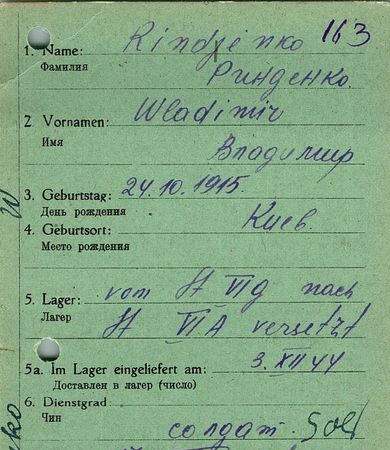 163
1. Name: Rindjenko
Фамилия Ринденко
2 Vornamen: Wladimir
Имя Владимир
3. Geburtstag: 24.10.1915.
День рождения
4. Geburtsort: Киев.
Место рождения
5. Lager: vom St VI G nach
Лагер St VI A versetzt
5a. Im Lager eingeliefert am: 3. XII 44
Доставлен в лагер (число)
6. Dienstgrad:
Чин солдат. Sold